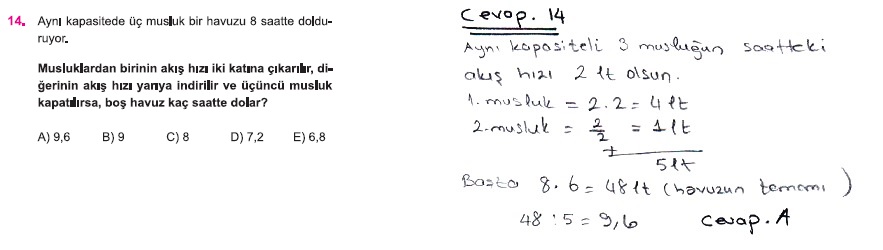 14. Aynı kapasitede üç musluk bir havuzu 8 saatte doldu-
ruyor.
Musluklardan birinin akış hızı iki katına çıkarılır, di-
ğerinin akış hızı yarıya indirilir ve üçüncü musluk
kapatılırsa, boş havuz kaç saatte dolar?
A) 9,6 B) 9 C) 8 D) 7,2 E) 6,8
Cevap. 14
Aynı kapasiteli 3 musluğun saatteki
akış hızı 2 lt olsun.
1. musluk = 2.2 = 4 lt
2. musluk = 2/2 = 1 lt
+
5 lt
Başta 8.6 = 48 lt (havuzun tamamı)
48 : 5 = 9,6 cevap. A